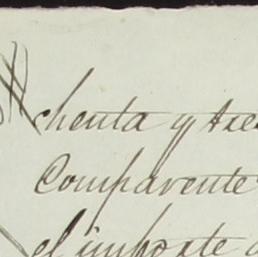 chenta y tre
Comparente
el importe